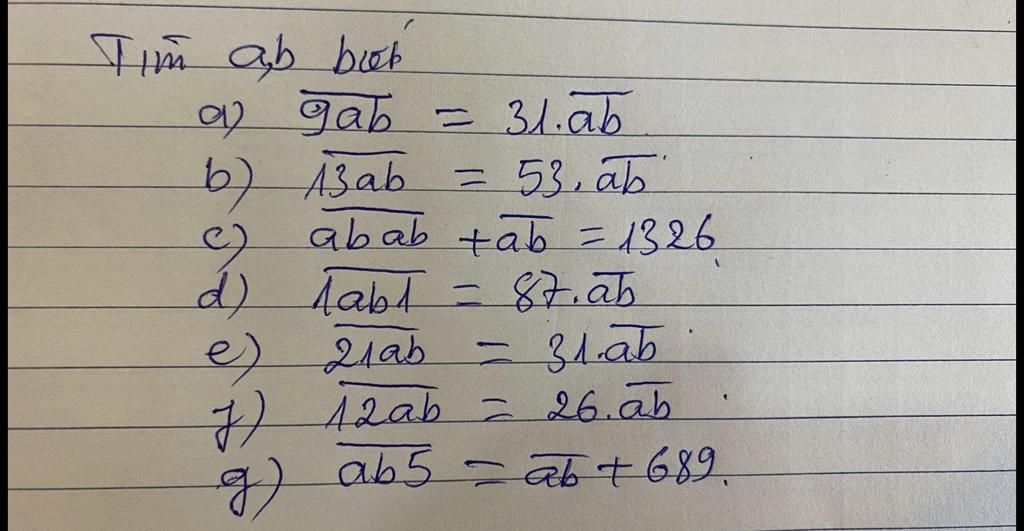 Tìm a,b biết
a) 9ab = 31.ab
b) 13ab = 53.ab
c) abab + ab = 1326.
d) 1ab1 = 87.ab
e) 21ab = 31.ab
f) 12ab = 26.ab
g) ab5 = ab + 689.